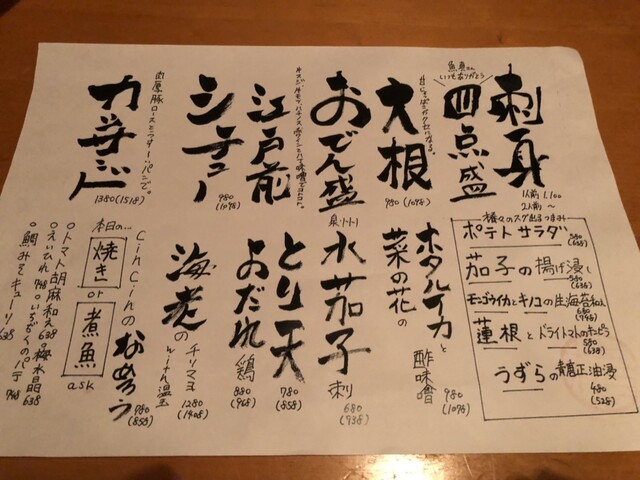 刺身
魚魚さん
いつもありがとう
四点盛
1人前 1,100
2人前〜
大根
980 (1078)
おでん盛
江戸前
シチュー
980
(1078)
肉原豚ロースとつけター・パンで。
カツサンド
1380 (1518)
種々のスグ出るつまみ
ポテトサラダ
580
(638)
茄子の揚げ浸し
580
(638)
モンゴウイカとキノコの生海苔和え
680
(748)
蓮根とドライトマトのキンピラ
580
(638)
うずらの青唐正油浸
480
(528)
ホタルイカと
菜の花の
酢味噌
980
(1078)
泉州
水茄子
刺
680
(738)
とり天
780
(858)
よだれ
鶏
880
(968)
海老の
チリマヨ
with温玉
1280
(1408)
CinCinのなめろう
980
(858)
本日の...
焼き
or
煮魚
ask
○トマト胡麻和え 638 ○梅水晶 638
○えいひれ 748 ○いちじくのパテ 748
○鯛みそキューリ 638